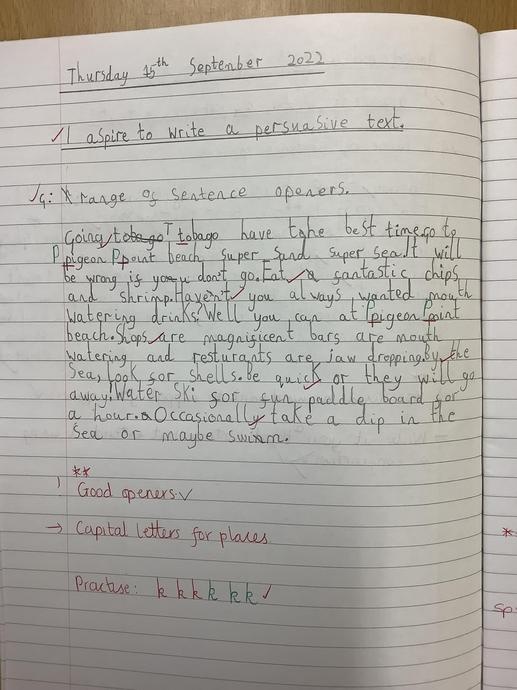 Thursday 15th September 2022
I aspire to write a persuasive text.
G: A range of sentence openers.
Going tobago Tobago have the best time.go to
Ppigeon Ppoint beach, super sand super sea.It will
be wrong if you don't go.Eat a fantastic chips
and shrimp.Haven't you always wanted mouth
watering drinks?Well you can at Pigeon Point
beach.Shops are magnificent bars are mouth
watering and resturants are jaw dropping.By the
Sea, look for shells.Be quick or they will go
away!Water Ski for fun paddle board for
a hour.Occasionally take a dip in the
Sea or maybe swim.
**
! Good openers.✓
→ Capital letters for places
Practise: k k k k k k ✓
*
sp